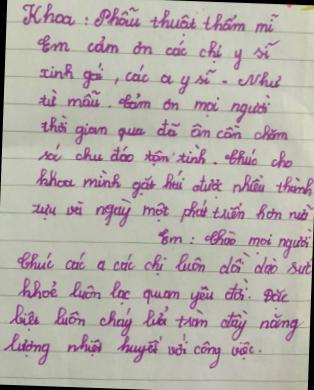 Khoa : Phẫu thuật thẩm mĩ
Em cảm ơn các chị y sĩ
xinh gái , các a y sĩ - Như
từ mẫu . Cảm ơn mọi người
thời gian qua đã ân cần chăm
só chu đáo tận tình . Chúc cho
khoa mình gặt hái được nhiều thành
tựu và ngaỳ một phát triển hơn nữ
Em : Chào mọi người
Chúc các a các chị luôn dồi dào sưt
khoẻ luôn lạc quan yêu đời . Đặc
biệt luôn cháy lửa tràn đầy năng
lượng nhiệt huyết với công việc .